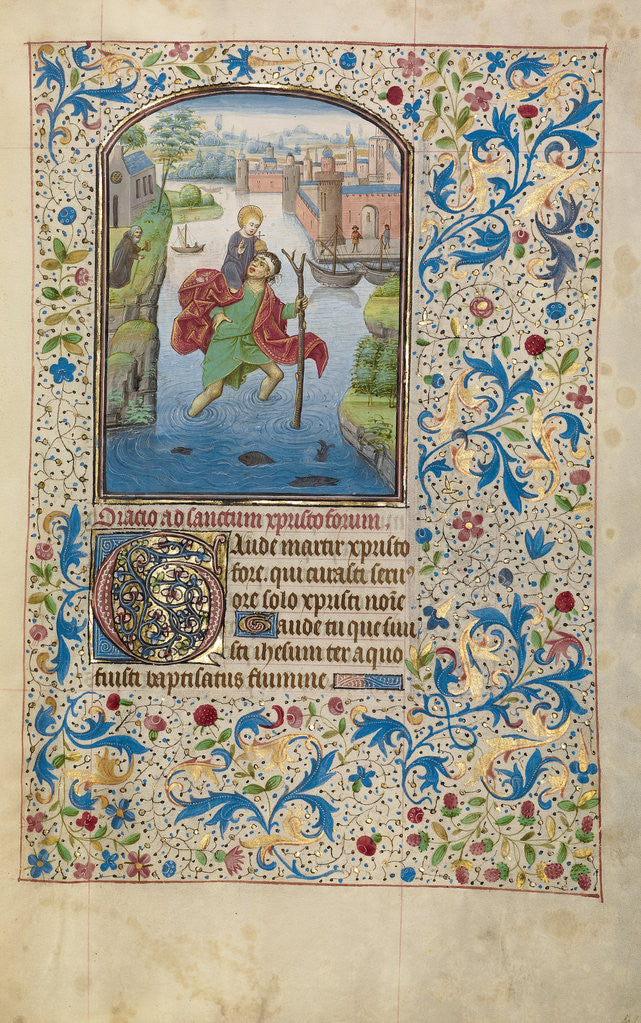 Oratio ad sanctum xpristoforum
Gaude martir xpristo
fore. qui curasti seru
ore solo xpristi nōīe
Gaude tu que suu
sti ihesum ter a quo
fuisti baptisatus flumine